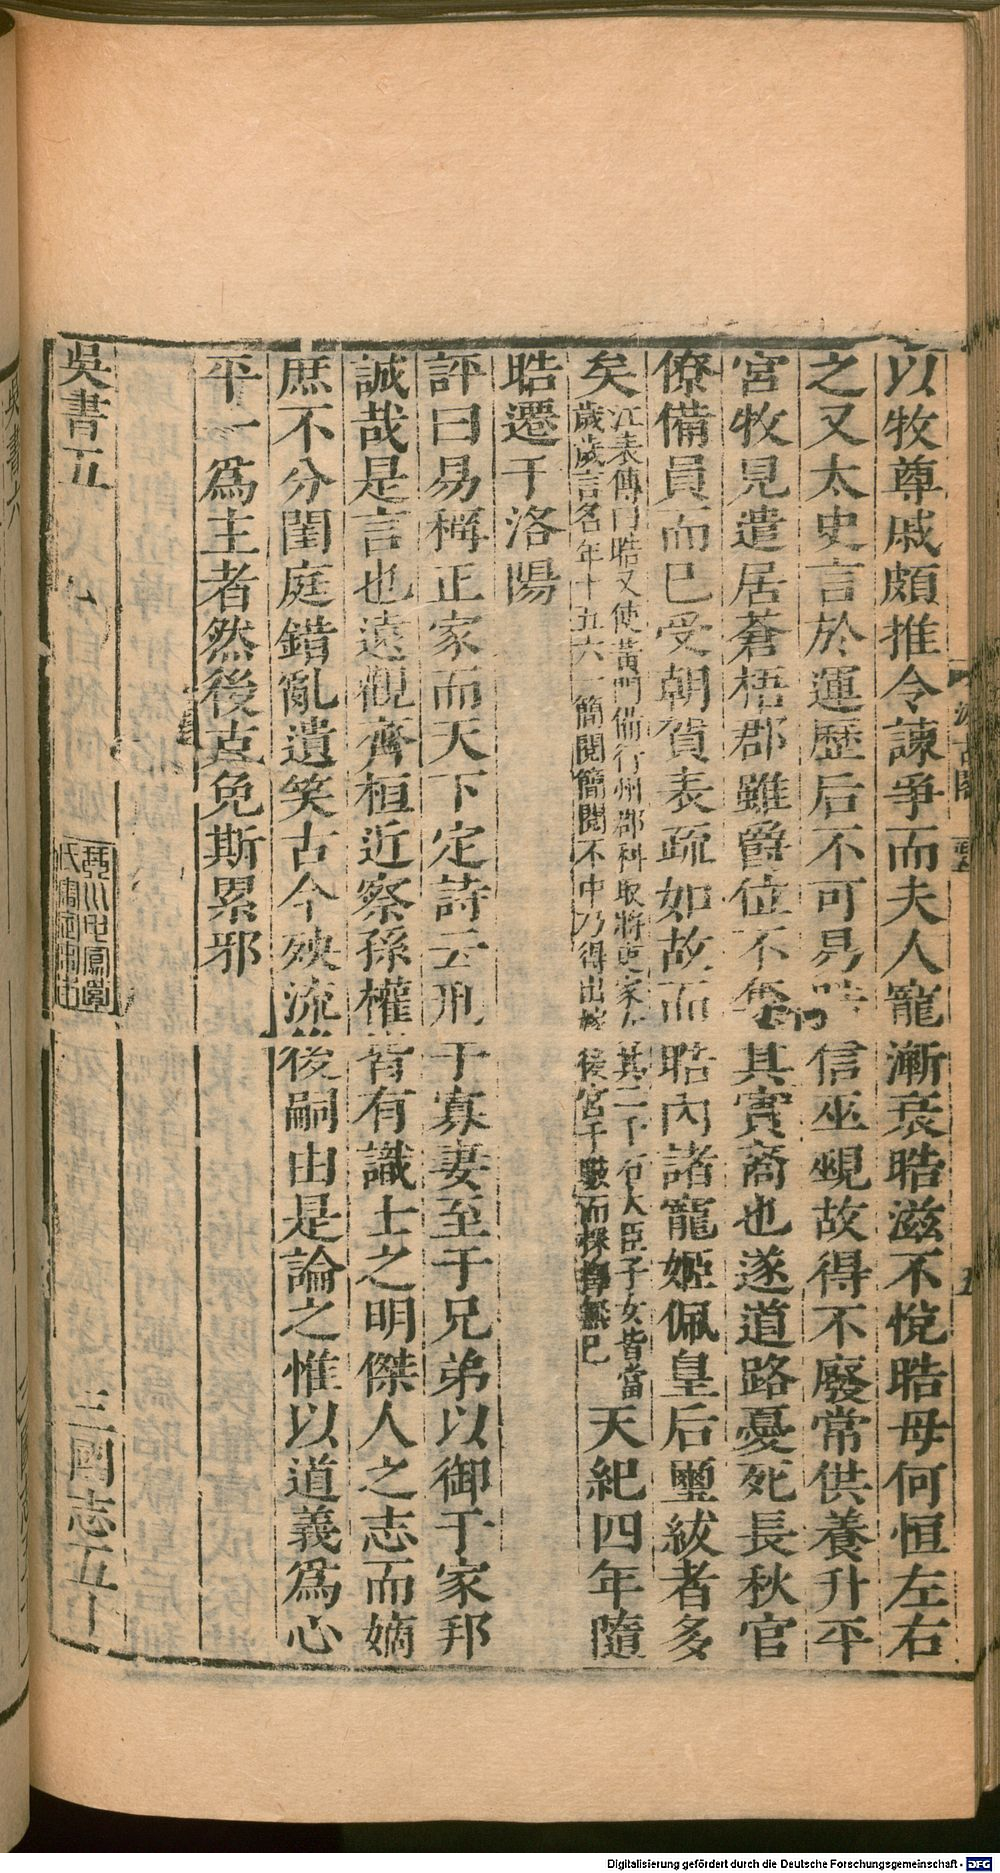 以牧尊戚頗推令諫爭而夫人寵漸衰晧滋不悅晧母何恒左右
之又太史言於運歷后不可易晧信巫覡故得不廢常供養升平
宮牧見遣居蒼梧郡雖爵位不奪其實裔也遂道路憂死長秋官
僚備員而已受朝賀表疏如故而晧內諸寵姬佩皇后璽紱者多
矣江表傳曰晧又使黃門備行州郡科取將吏家女其二千石大臣子女皆當
歲歲言名年十五六一簡閱簡閱不中乃得出嫁後宮千數而採擇無已天紀四年隨
晧遷于洛陽
評曰易稱正家而天下定詩云刑于寡妻至于兄弟以御于家邦
誠哉是言也遠觀齊桓近察孫權皆有識士之明傑人之志而嫡
庶不分閨庭錯亂遺笑古今殃流後嗣由是論之惟以道義爲心
平一爲主者然後克免斯累邪
吳書五 三國志五十
吳書六
Digitalisierung gefördert durch die Deutsche Forschungsgemeinschaft - DFG